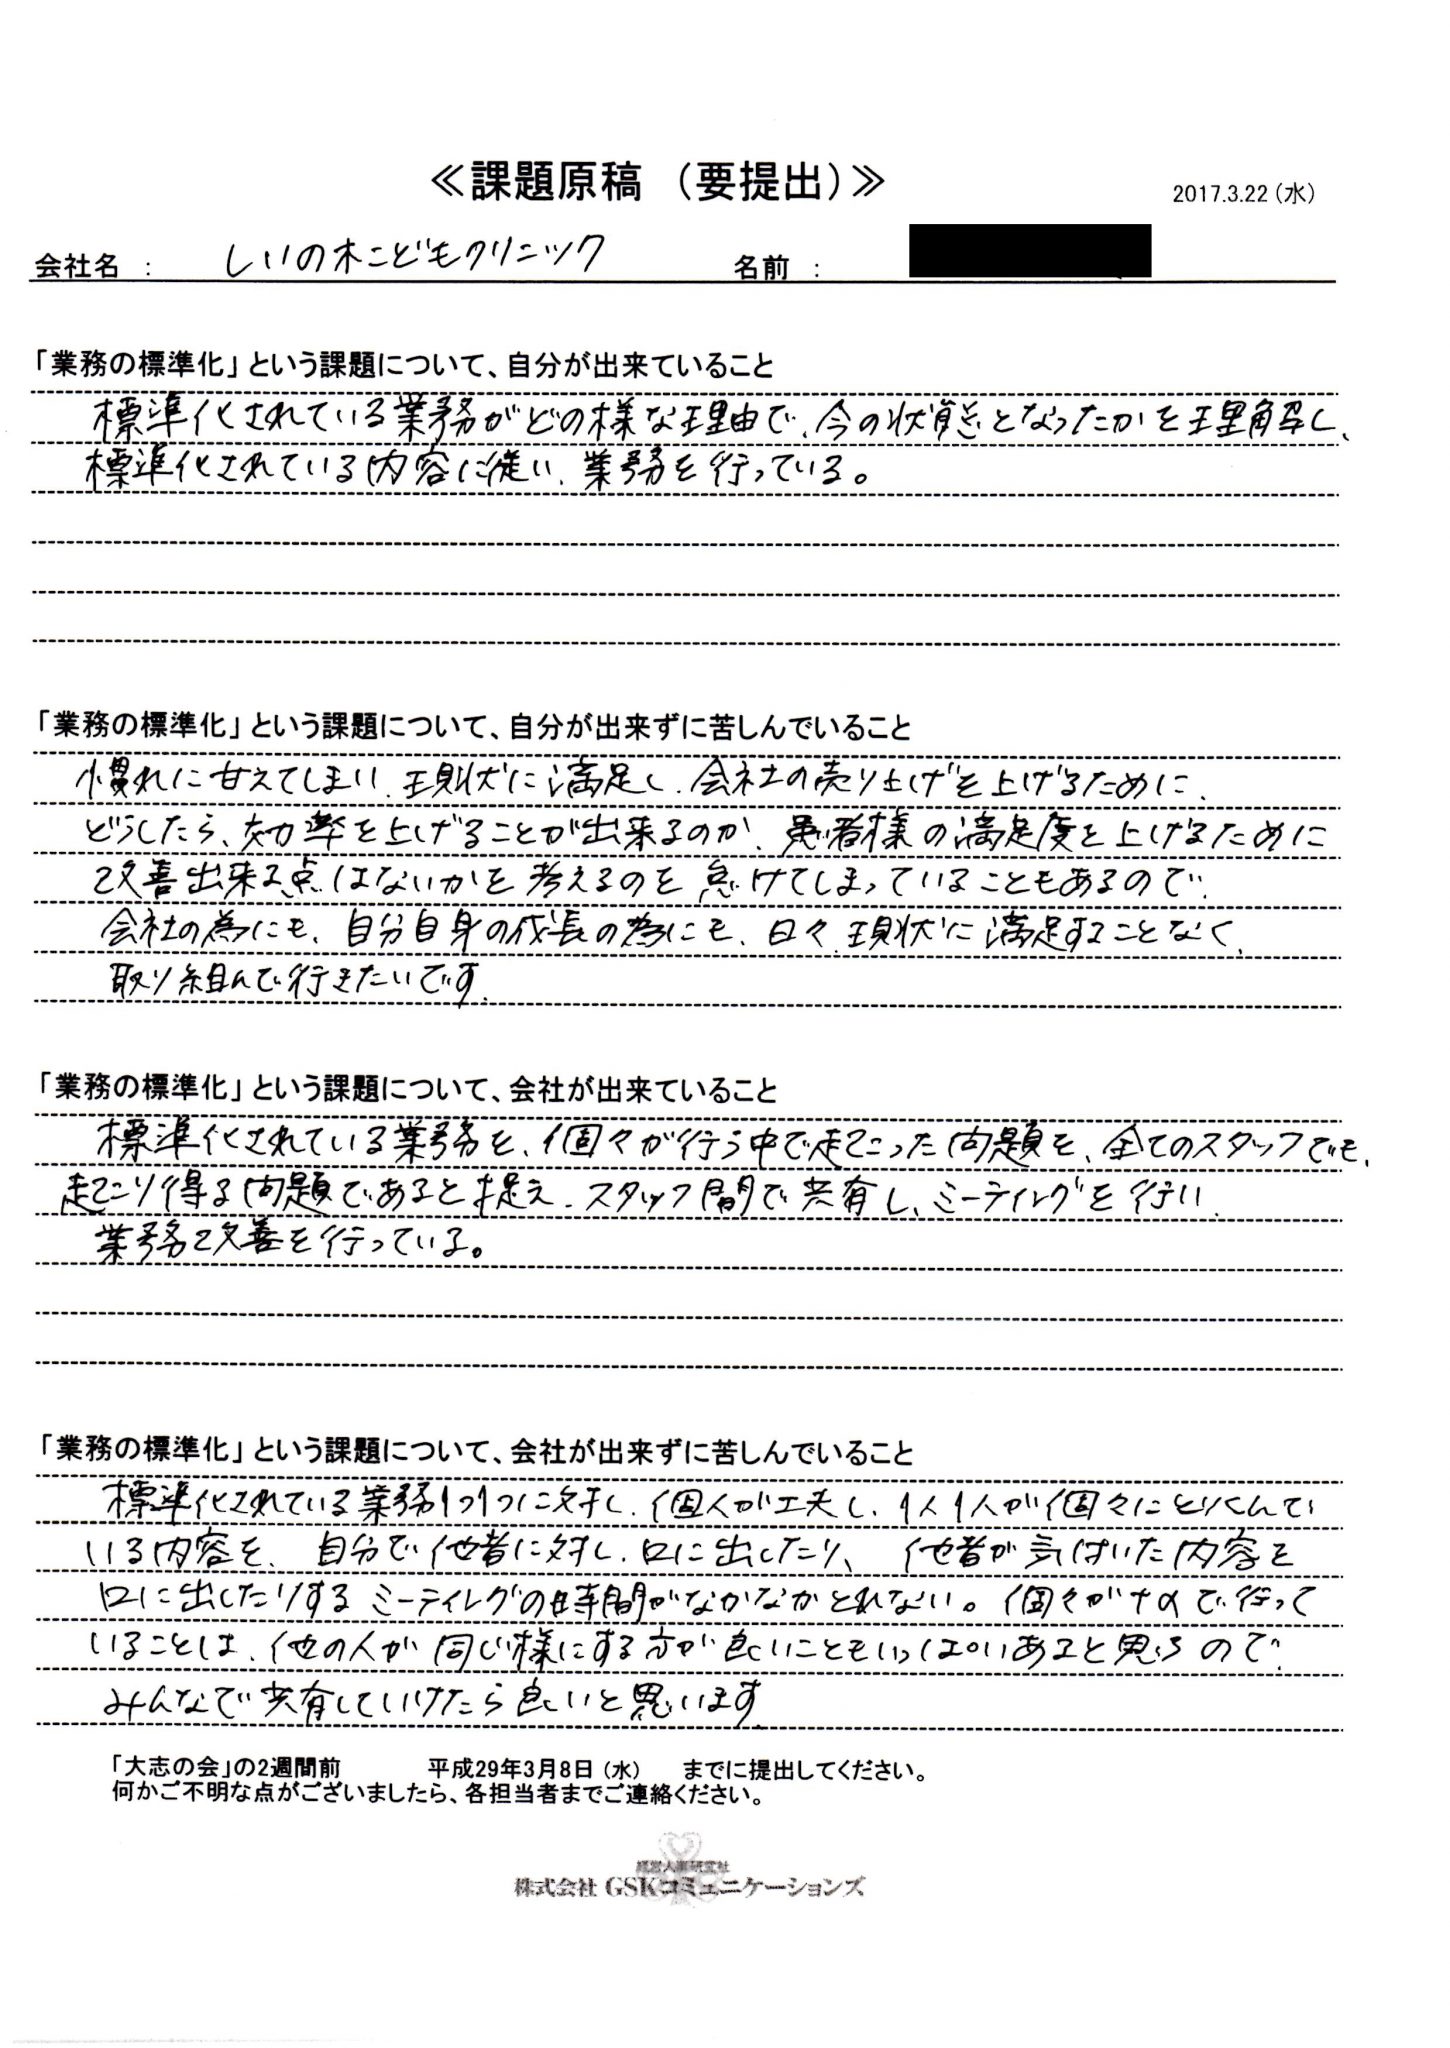 ≪課題原稿 （要提出）≫
2017.3.22（水）
会社名 ： しいの木こどもクリニック 名前 ：
「業務の標準化」という課題について、自分が出来ていること
標準化されている業務がどの様な理由で、今の状態となったかを理解し、
標準化されている内容に従い、業務を行っている。
「業務の標準化」という課題について、自分が出来ずに苦しんでいること
慣れに甘えてしまい、現状に満足し、会社の売り上げを上げるために、
どうしたら、効率を上げることが出来るのか、患者様の満足度を上げるために
改善出来る点はないかを考えるのを怠けてしまっていることもあるので、
会社の為にも、自分自身の成長の為にも、日々、現状に満足することなく、
取り組んで行きたいです。
「業務の標準化」という課題について、会社が出来ていること
標準化されている業務を、個々が行う中で起こった問題を、全てのスタッフでも、
起こり得る問題であると捉え、スタッフ間で共有し、ミーティングを行い、
業務改善を行っている。
「業務の標準化」という課題について、会社が出来ずに苦しんでいること
標準化されている業務1つ1つに対し、個人が工夫し、1人1人が個々にとりくんで
いる内容を、自分で他者に対し、口に出したり、他者が気付いた内容を
口に出したりするミーティングの時間がなかなかとれない。個々が で行って
いることは、他の人が同じ様にする方が良いこともいっぱいあると思うので、
みんなで共有していけたら良いと思います。
「大志の会」の2週間前 平成29年3月8日（水） までに提出してください。
何かご不明な点がございましたら、各担当者までご連絡ください。
経営人事研究社
株式会社 GSKコミュニケーションズ